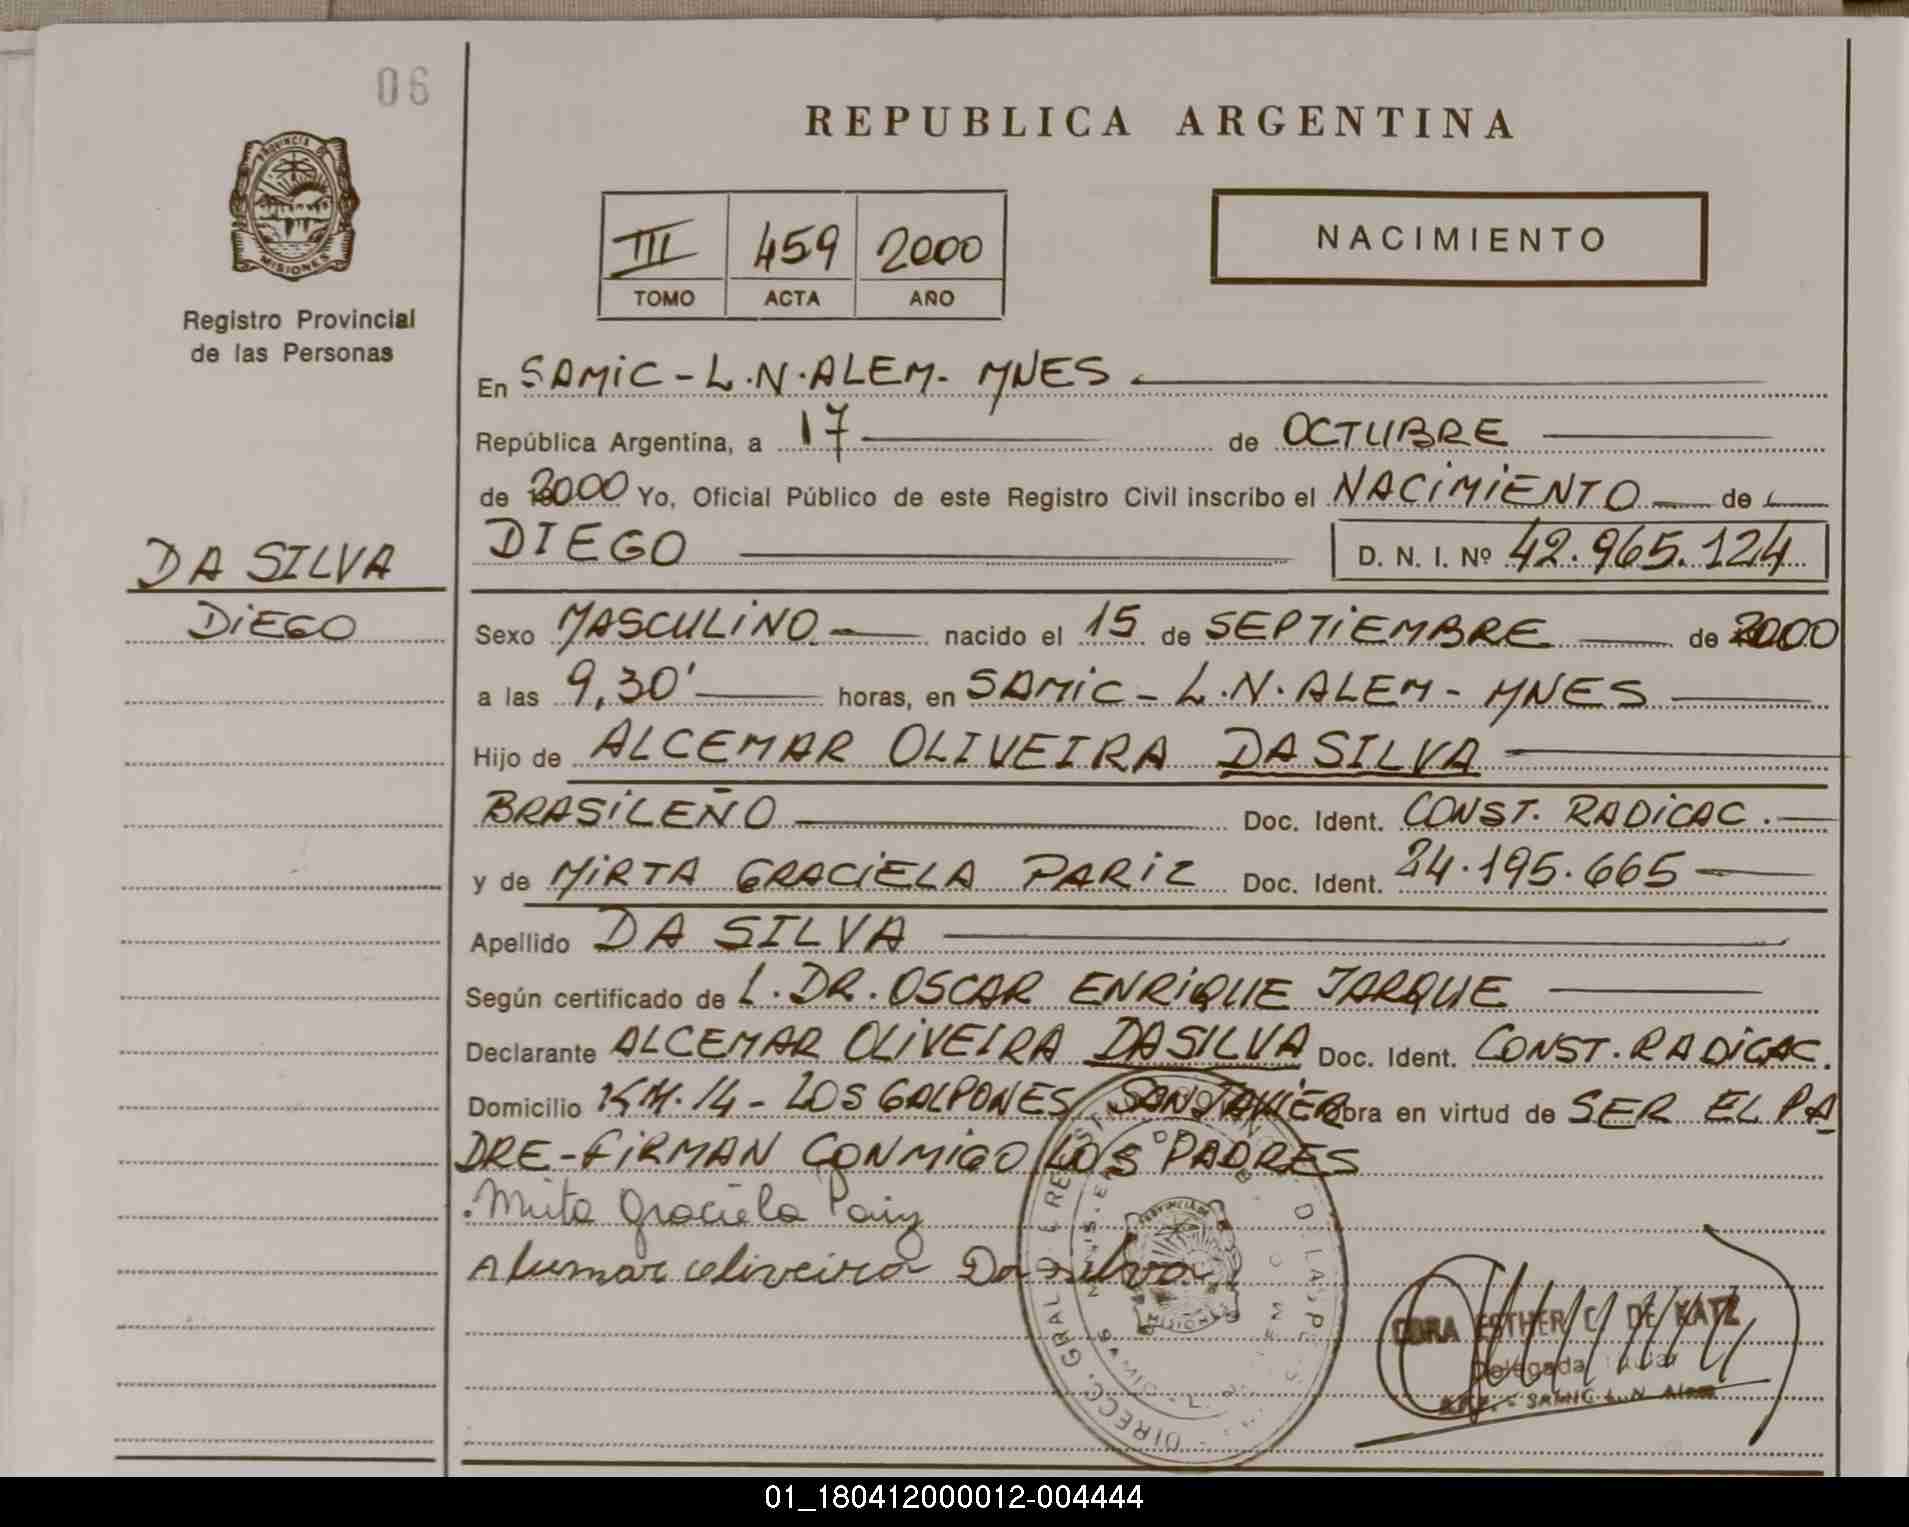 06
REPUBLICA ARGENTINA
PROVINCIA DE
MISIONES
III 459 2000
TOMO ACTA AÑO
NACIMIENTO
Registro Provincial
de las Personas
En SAMIC - L.N. ALEM - MNES
República Argentina, a 17 de OCTUBRE
de 2000 Yo, Oficial Público de este Registro Civil inscribo el NACIMIENTO de
DIEGO D. N. I. Nº 42.965.124
DA SILVA
DIEGO
Sexo MASCULINO nacido el 15 de SEPTIEMBRE de 2000
a las 9,30' horas, en SAMIC - L.N. ALEM - MNES
Hijo de ALCEMAR OLIVEIRA DA SILVA
BRASILEÑO Doc. Ident. CONST. RADICAC.
y de MIRTA GRACIELA PARIZ Doc. Ident. 24.195.665
Apellido DA SILVA
Según certificado de L. DR. OSCAR ENRIQUE JARQUE
Declarante ALCEMAR OLIVEIRA DA SILVA Doc. Ident. CONST. RADICAC.
Domicilio KM. 14 - LOS GALPONES SAN JAVIER obra en virtud de SER EL PA
DRE - FIRMAN CONMIGO LOS PADRES
Mirta Graciela Pariz
Alcemar oliveira Da silva
ESTHER C. DE KATZ
Delegada Titular
SAMIC L. N. Alem
01_180412000012-004444